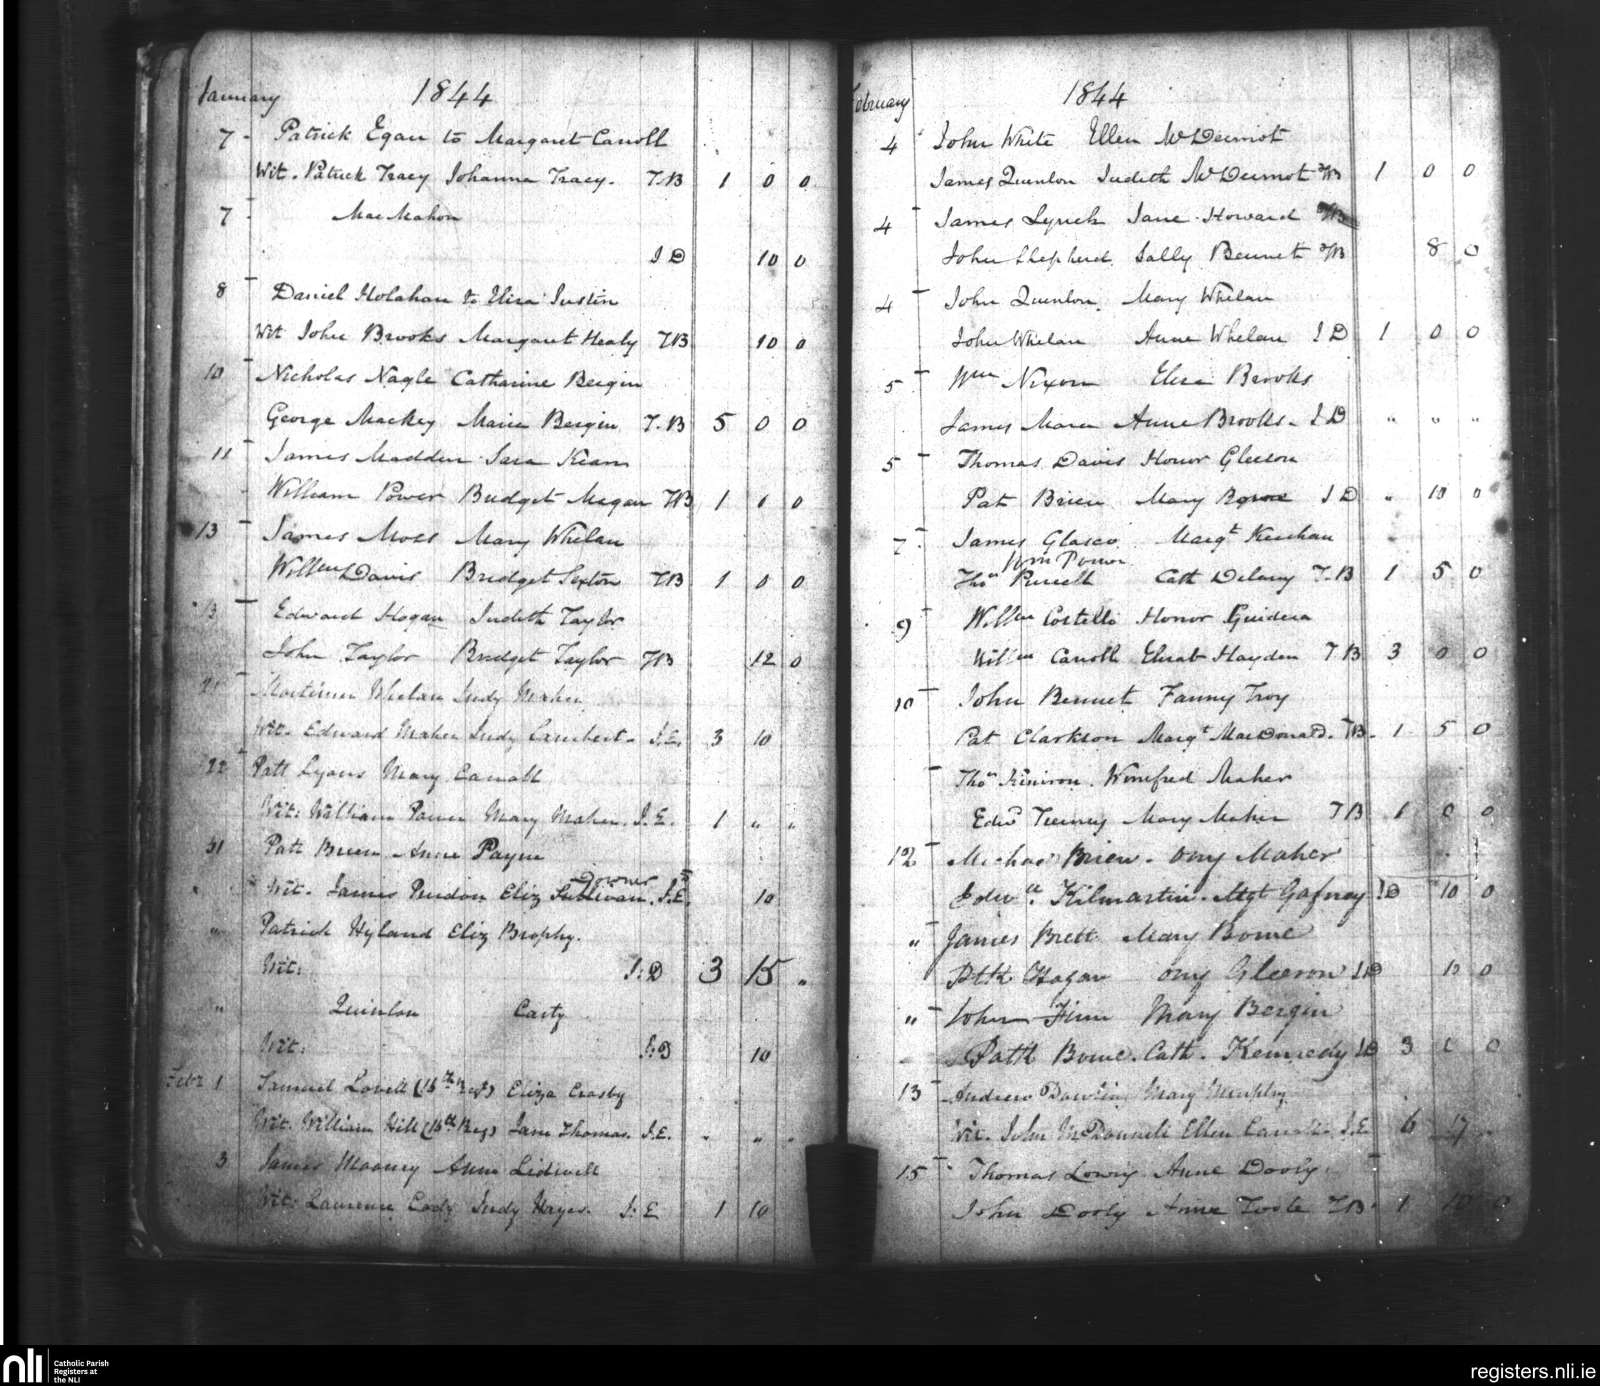 January 1844
7 - Patrick Egan to Margaret Carroll
Wit. Patrick Tracy Johanna Tracy. T.B 1 0 0
7 - MacMahon
J D 10 0
8 - Daniel Holahan to Eliza Justin
Wit John Brooks Margaret Healy TB 10 0
10 - Nicholas Nagle Catharine Bergin
George Mackey Maria Bergin T.B 5 0 0
11 - James Madden Sara Kean
William Power Bridget Megan TB 1 0 0
13 - James Moss Mary Whelan
Willm Davis Bridget Sexton TB 1 0 0
13 - Edward Hogan Judith Taylor
John Taylor Bridget Taylor TB 12 0
21 - Mortimer Whelan Judy Maher
Wit. Edward Maher Judy Lambert. J.E. 3 10
22 Patt Lyons Mary Carroll
Wit: William Power Mary Maher. J.E. 1 " "
31 Patt Breen Anne Payne
Downer
" Wit. James Eliz Sullivan. J.E. 10
" Patrick Hyland Eliz Brophy.
Wit: J:D 3 15 "
" Quinlan Casty
Wit: J:D 10
Feby 1 Samuel Lovell (16th Regt) Eliza Crosby
Wit. William Hill (16th Reg) Jane Thomas J.E. " " "
3 James Mooney Anne Lidwell
Wit: Laurence Cody Judy Hayes. J:E 1 10
February 1844
4 John White Ellen McDermot
James Quinlon Judith McDermot TB 1 0 0
4 - James Lynch Jane Howard TB
John Shepherd Sally Bennet TB 8 0
4 - John Quinlon Mary Whelan
John Whelan Anne Whelan J D 1 0 0
5 - Wm Nixon Eliza Brooks
James Mara Anne Brooks. J D " " "
5 - Thomas Davis Honor Gleeson
Pat Brien Mary J D " 10 0
7 - James Glasco Margt Keeshan
Wm Power
Thos Purcell Cath Delany T.B 1 5 0
9 - Willm Costello Honor Guidera
Willm Carroll Elizab Hayden T B 3 0 0
10 - John Bennet Fanny Troy
Pat Clarkson Margt MacDonald. TB. 1 5 0
- Thos Winefred Maher
Edwd Tierney Mary Maher T B 1 0 0
12 - Michael Brien. Omy Maher
Edwd. Kilmartin. Mgt Gafney JD 10 0
" James Brett Mary Bowe
Ptk Hogan Omy Gleeson JD 12 0
" John Finn Mary Bergin
Patk Bowe. Cath. Kennedy JD 3 0 0
13 - Andrew Dowling Mary Murphy
Wit. John McDonnell Ellen Carroll. J.E 6 17 "
15 - Thomas Lowry Anne Dooly.
John Dooly Anne Toole TB. 1 10 0
nli Catholic Parish
Registers at
the NLI
registers.nli.ie